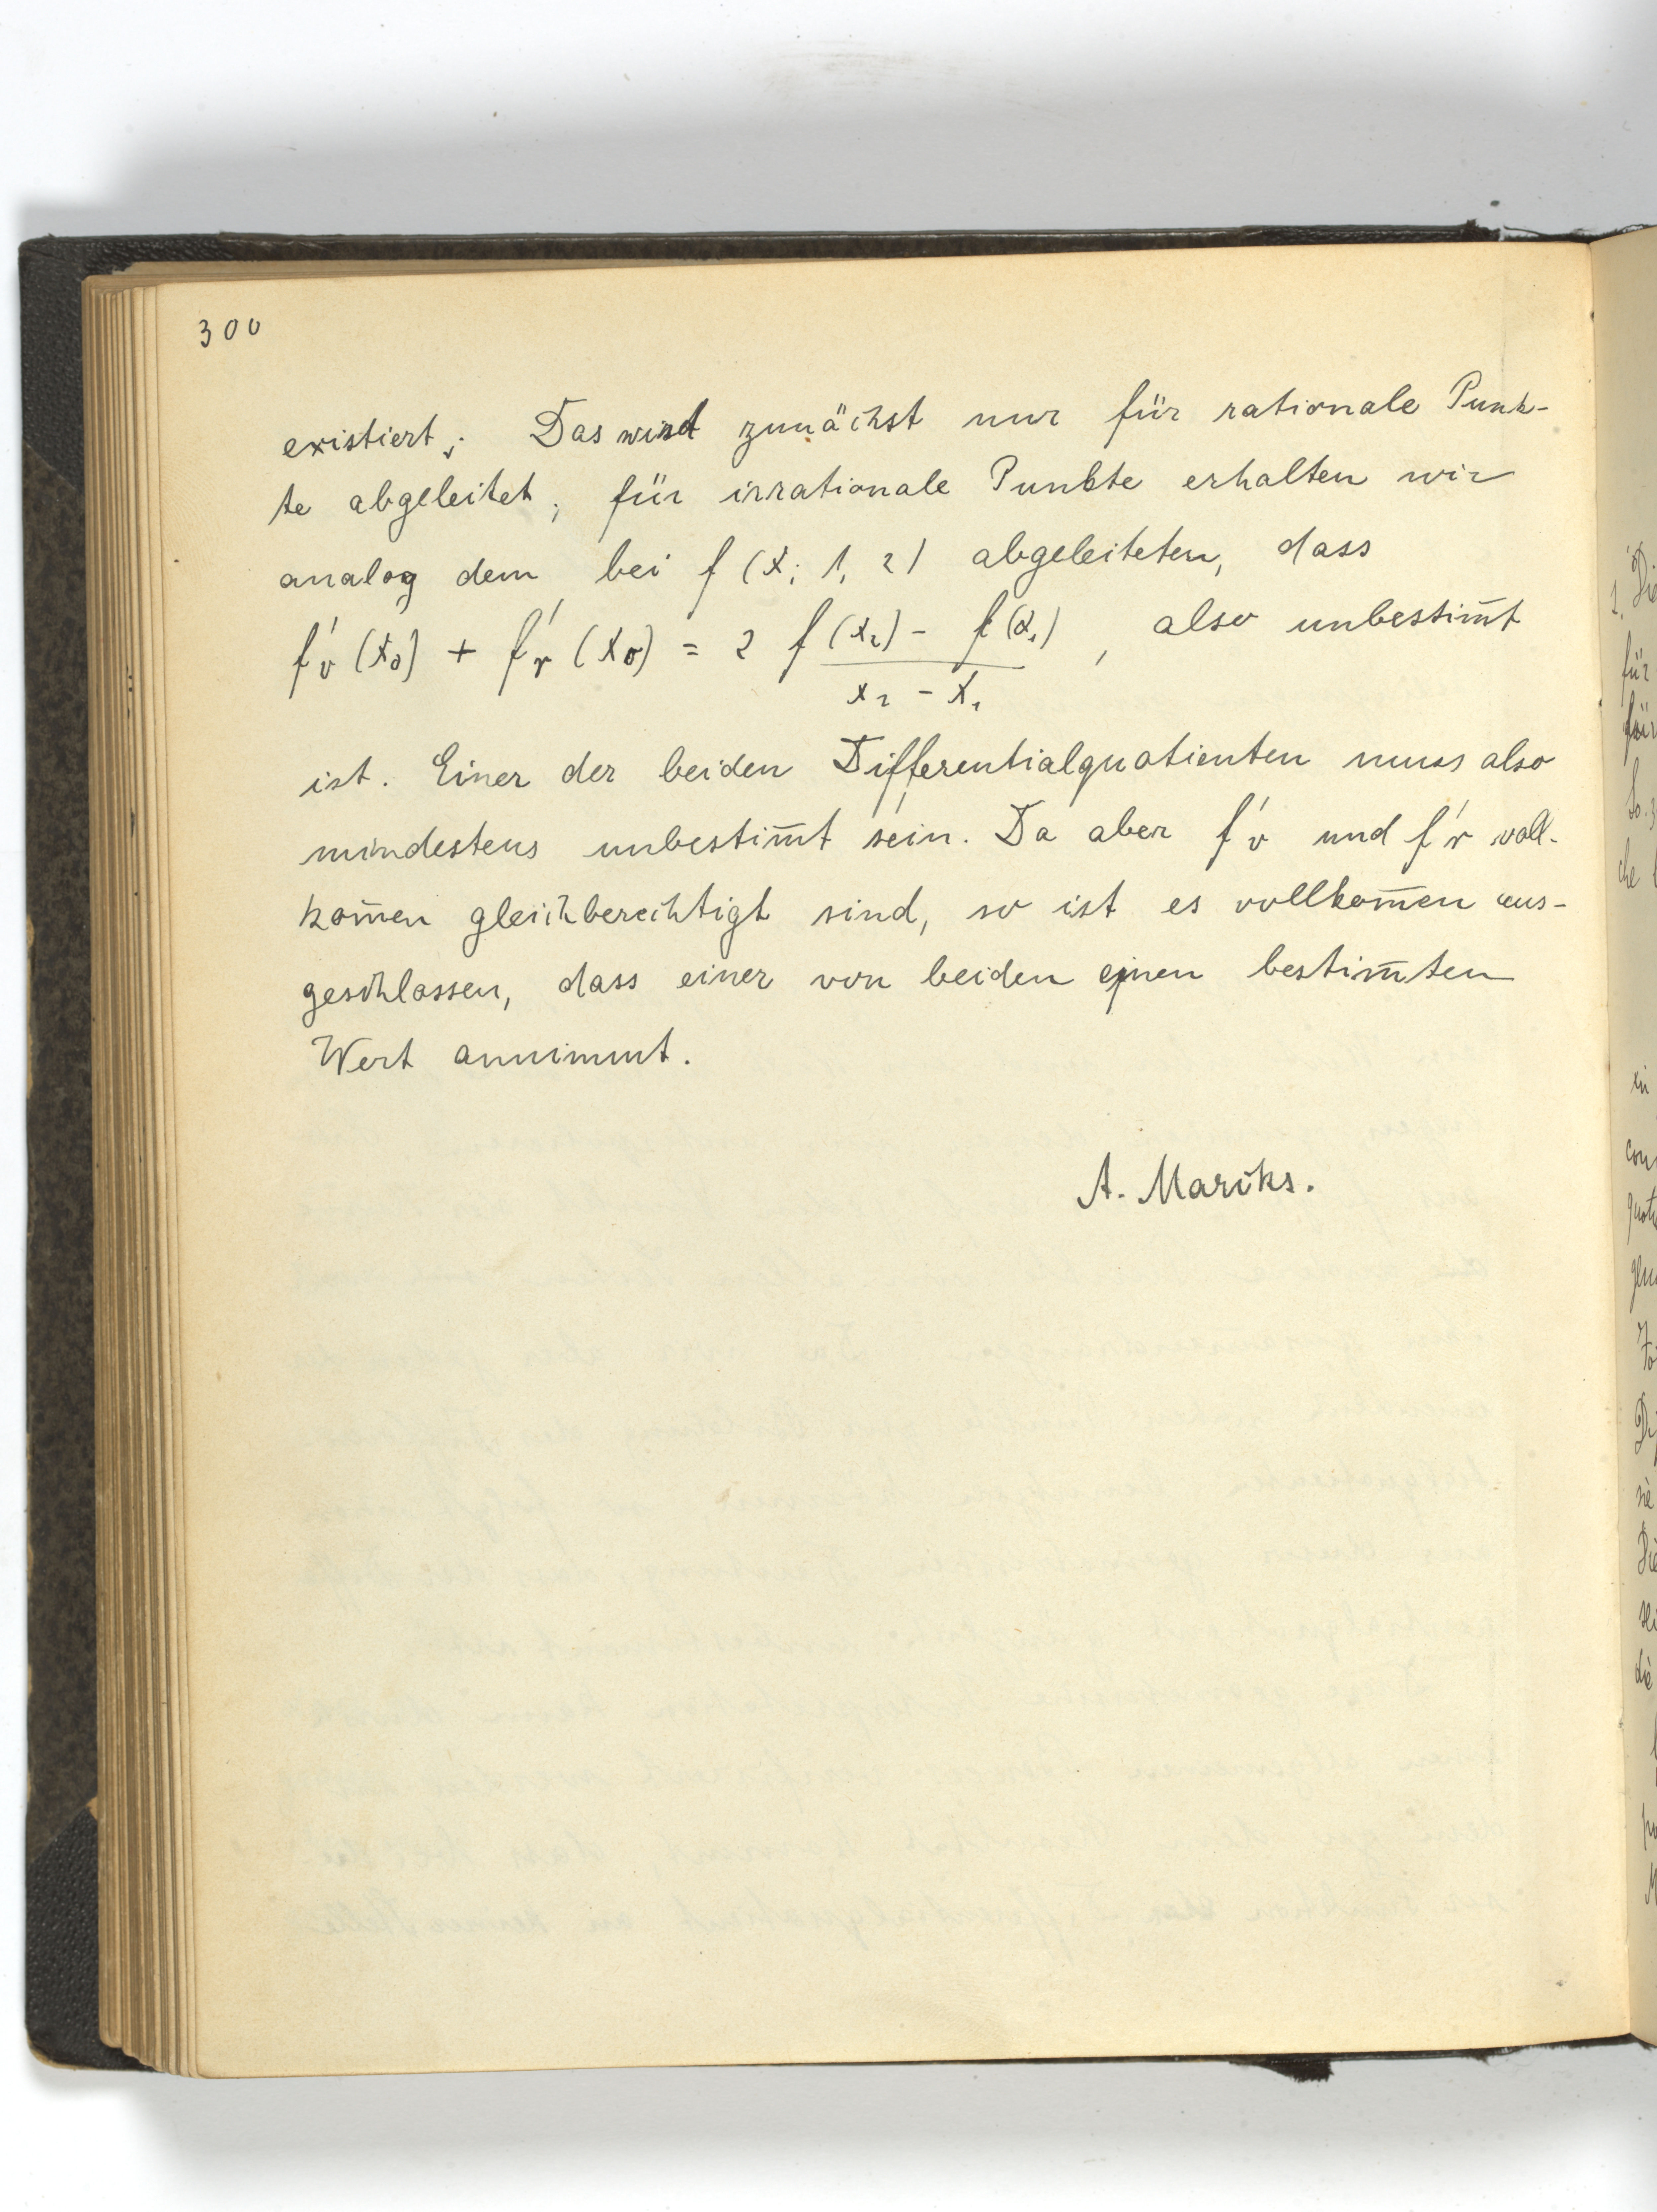 300
existiert; Das wird zunächst nur für rationale Punk-
te abgeleitet; für irrationale Punkte erhalten wir
analog dem bei f (x; 1, 2) abgeleiteten, dass
f'v (x0) + f'r (x0) = 2 f (x2) - f (x1) , also unbestim̄t
x2 - x1
ist. Einer der beiden Differentialquotienten muss also
mindestens unbestim̄t sein. Da aber f'v und f'r voll-
kom̄en gleichberechtigt sind, so ist es vollkom̄en aus-
geschlossen, dass einer von beiden einen bestim̄ten
Wert annimmt.
A. Marcks.